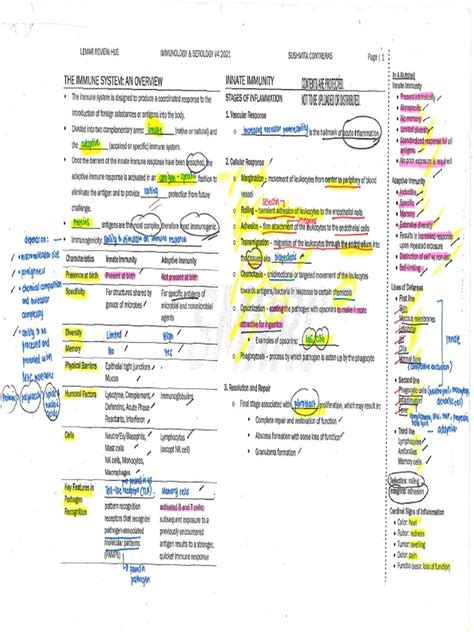 LEMAR REVIEW HUB
IMMUNOLOGY & SEROLOGY V4 2021
SUSHMITA CONTRERAS
Page | 1
THE IMMUNE SYSTEM: AN OVERVIEW
The immune system is designed to produce a coordinated response to the
introduction of foreign substances or antigens into the body.
Divided into two complementary arms: innate (native or natural) and
the adaptive (acquired or specific) immune system.
Once the barriers of the innate immune response have been breached, the
adaptive immune response is activated in an antigen - specific fashion to
eliminate the antigen and to provide lasting protection from future
challenge.
Proteins antigens are the most complex, therefore most immunogenic.
Immunogenicity: ability to stimulate an immune response
depends on:
macromolecular size
foreignness
chemical composition
and molecular
complexity
ability to be
processed and
presented with
MHC molecules
Characteristics Innate Immunity Adaptive Immunity
Present at birth Present at birth Not present at birth
Specificity For structures shared by For specific antigens of
groups of microbes microbial and nonmicrobial
agents
Diversity Limited High
Memory No Yes
Physical Barriers Epithelial tight junctions
Mucus
Humoral Factors Lysozyme, Complement, Immunoglobulins
Defensins, Acute Phase
Reactants, Interferon
Cells Neutro/Eo/Basophils, Lymphocytes
Mast cells (except NK cells)
NK cells, Monocytes,
Macrophages
Key Features in Toll-like receptor (TLR) Memory cells
Pathogen pattern recognition activated B and T cells
Recognition receptors that recognize subsequent exposure to a
pathogen-associated previously encountered
molecular patterns antigen results to a stronger,
(PAMPS) quicker immune response
found in
pathogen
INNATE IMMUNITY
CONTENTS ARE PROTECTED.
STAGES OF INFLAMMATION
NOT TO BE UPLOADED OR DISTRIBUTED.
1. Vascular Response
Increased vascular permeability is the hallmark of acute inflammation
2. Cellular Response
Margination - movement of leukocytes from center to periphery of blood
vessel
selectin
Rolling - transient adhesion of leukocytes to the endothelial cells
Adhesion - firm attachment of the leukocytes to the endothelial cells
Transmigration - migration of the leukocytes through the endothelium into
the tissues aka diapedesis
Chemotaxis - unidirectional or targeted movement of the leukocytes
towards antigens/bacteria in response to certain chemicals
Opsonization - coating the pathogen with opsonins to make it more
attractive for ingestion
Examples of opsonins:
Phagocytosis - process by which pathogen is eaten up by the phagocyte
3. Resolution and Repair
Final stage associated with fibroblast proliferation, which may result in:
Complete repair and restoration of function
Abscess formation with some loss of function
Granuloma formation
In a Nutshell
Innate Immunity
Present intrinsically
Nonspecific
No memory
Limited diversity
Standardized for all
antigens
No prior exposure is required
Adaptive Immunity
Inducible
Specific
Memory
Extensive diversity
Response is increased
upon repeated exposure
Distinction of self vs non-self
Self-limiting
Lines of Defenses
First line
Skin
Mucous membranes
Normal flora
(competitive exclusion)
Second line
Phagocytic cells
Inflammation
Fever
Third line
Lymphocytes
Antibodies
Memory cells
adaptive
Selectins: rolling
Integrins: adhesion
Cardinal Signs of Inflammation
Calor: heat
Rubor: redness
Tumor: swelling
Dolor: pain
Functio laesa: loss of function